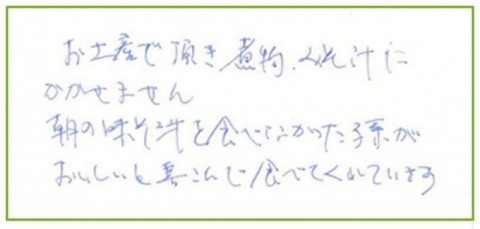 お土産で頂き煮物、みそ汁に
かかせません
朝の味そ汁を食べなかった孫が
おいしいと喜こんで食べてくれています